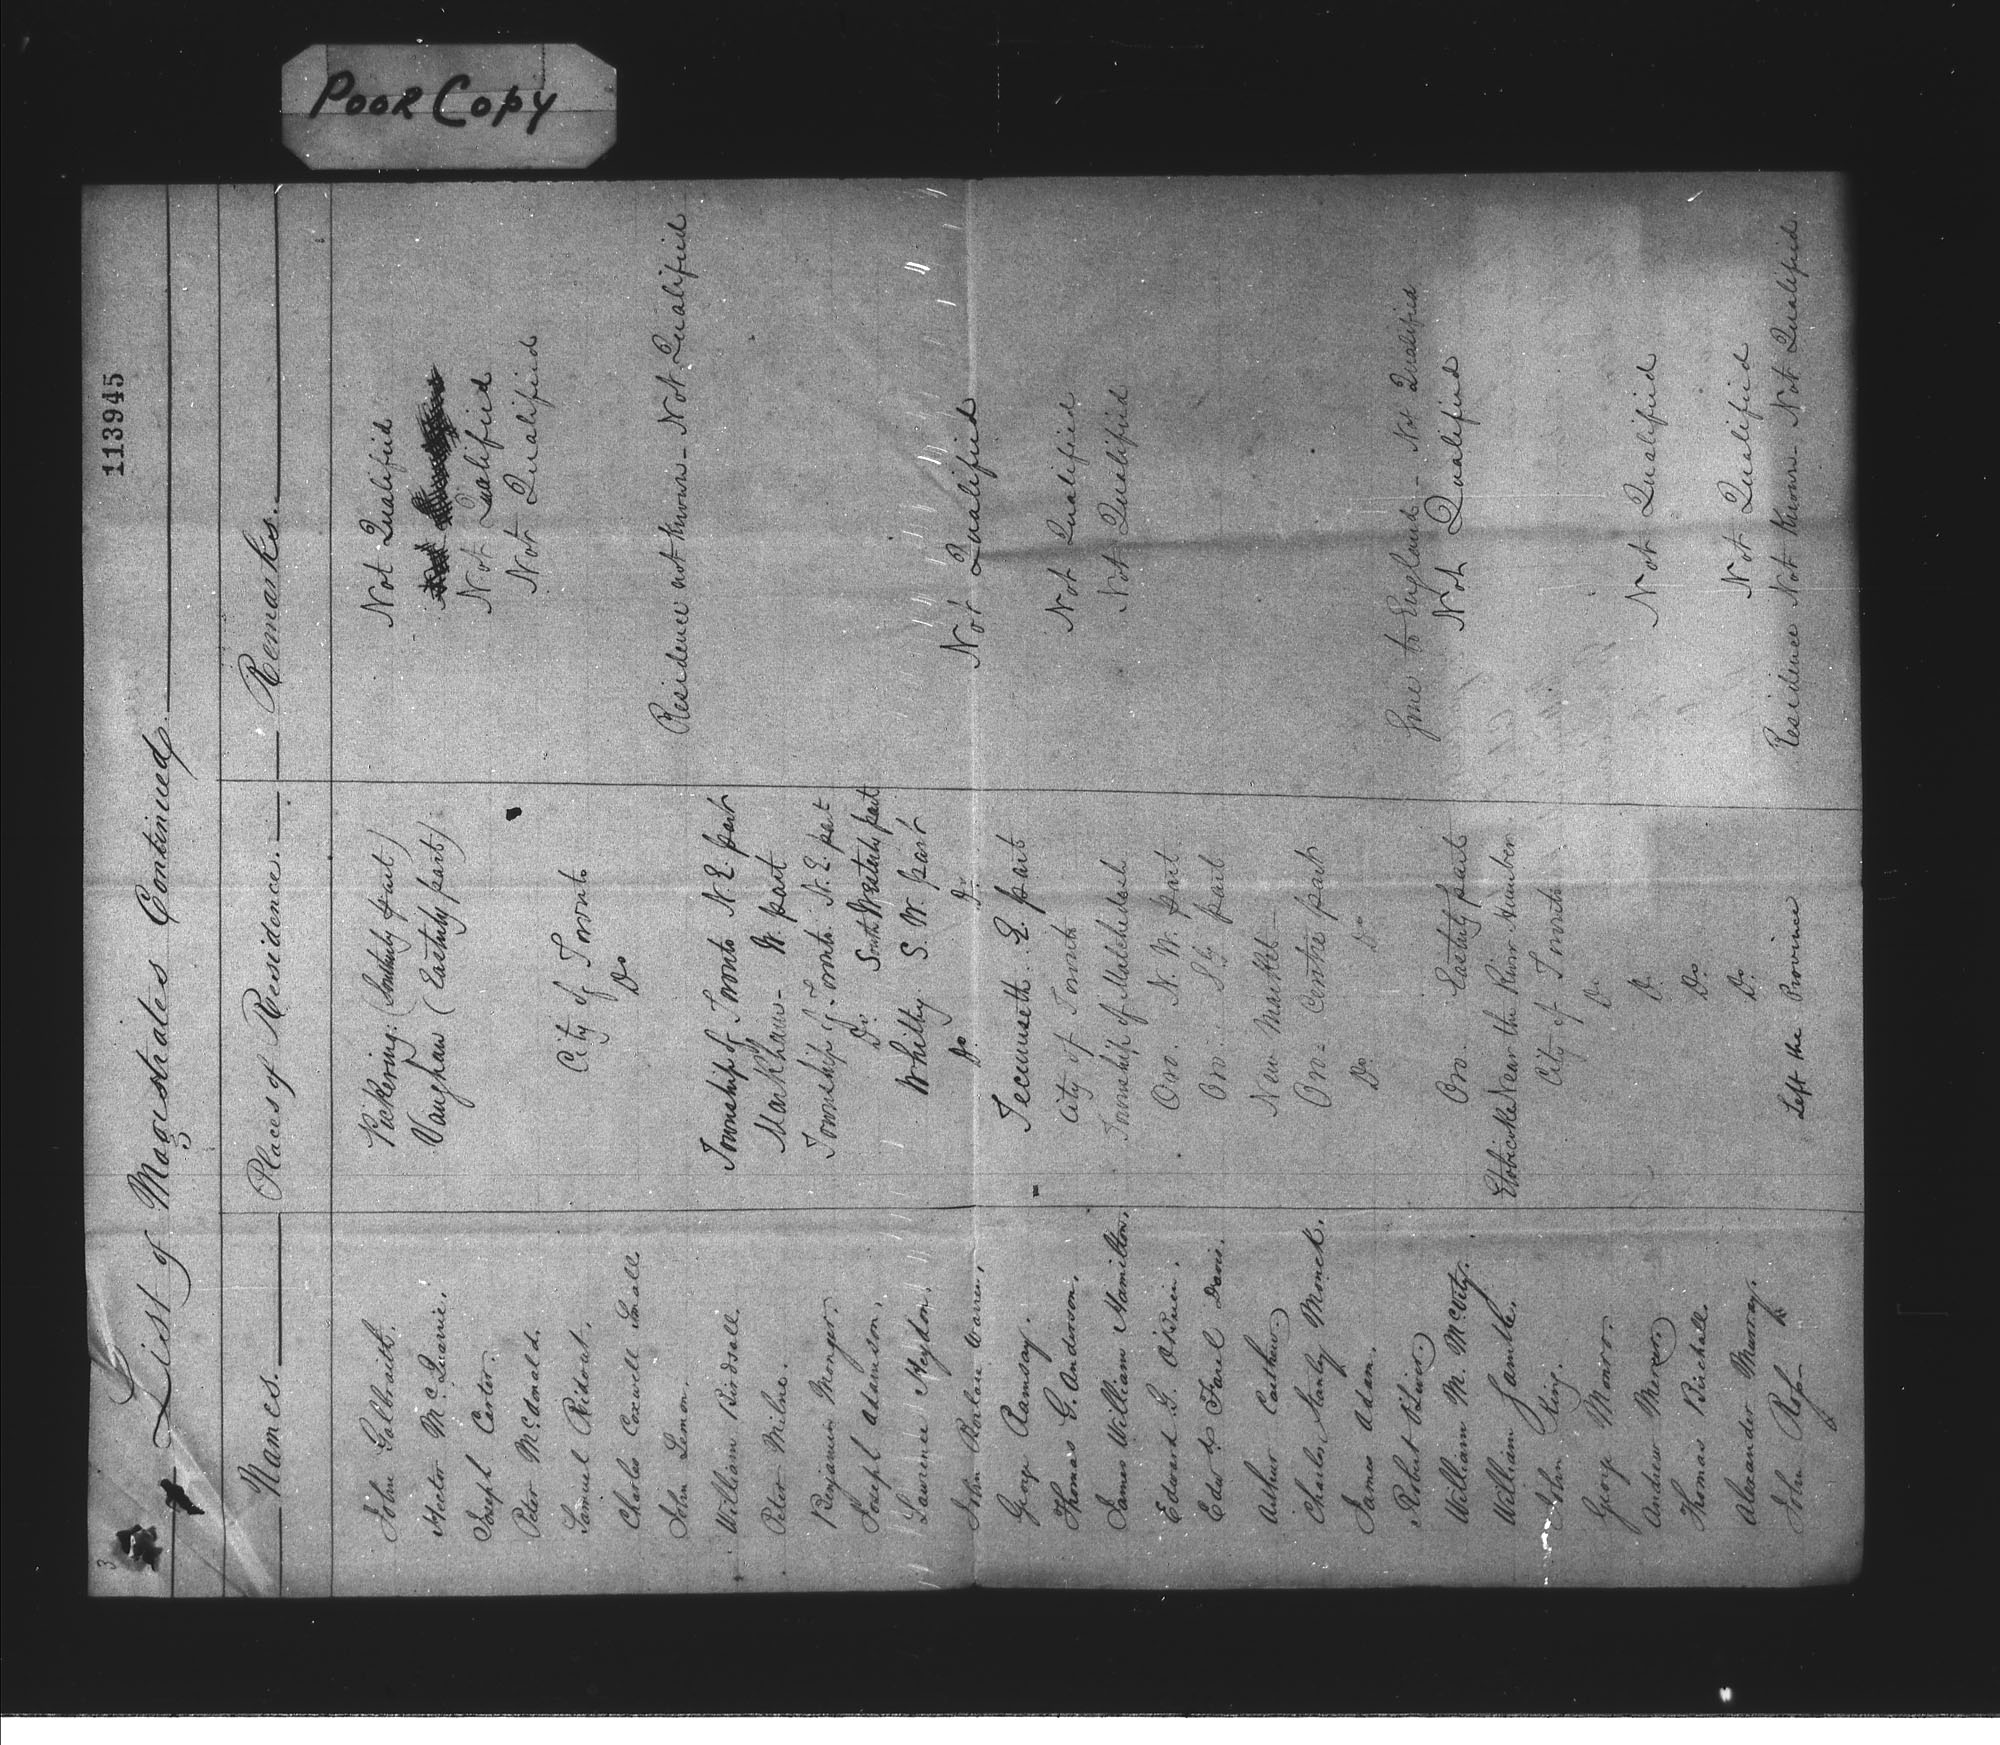 Poor Copy
113945
3
List of Magistrates Continued.
Names. Places of Residence. Remarks.
John Galbraith. Pickering (Southerly part) Not Qualified
Hector McQuarie. Vaughan (Easterly part)
Joseph Carter. Not Qualified
Peter McDonald. Not Qualified
Samuel Ridout. City of Toronto
Charles Coxwell Small Do
John Lemon. Residence not known - Not Qualified
William Birdsall. Township of Toronto N.E. part
Peter Milne. Markham - W. part
Benjamin Monger. Township of Toronto. N.E. part
Joseph Adamson. Do. South Westerly part
Lawrence Heydon. Whitby. S.W. part
John Warren. Do Do. Not Qualified
George Ramsay. Tecumseth. E. part
Thomas G. Anderson. City of Toronto Not Qualified
James William Hamilton. Township of Matchedash Not Qualified
Edward G. O'Brien. Oro. N.W. part
Edwd Davis. Oro. part
Arthur Carthew New Market
Charles Stanley Monck. Oro - Centre part
James Adam. Do. Do.
Robert Oliver. Gone to England - Not Qualified
William M. McVity. Oro. Easterly part Not Qualified
William Gamble. Etobicoke Near the River Humber
John King. City of Toronto
George Monro. Do.
Andrew Mercer. Do. Not Qualified
Thomas Birchall. Do.
Alexander Murray. Do. Not Qualified
John Left the Province Residence Not Known - Not Qualified